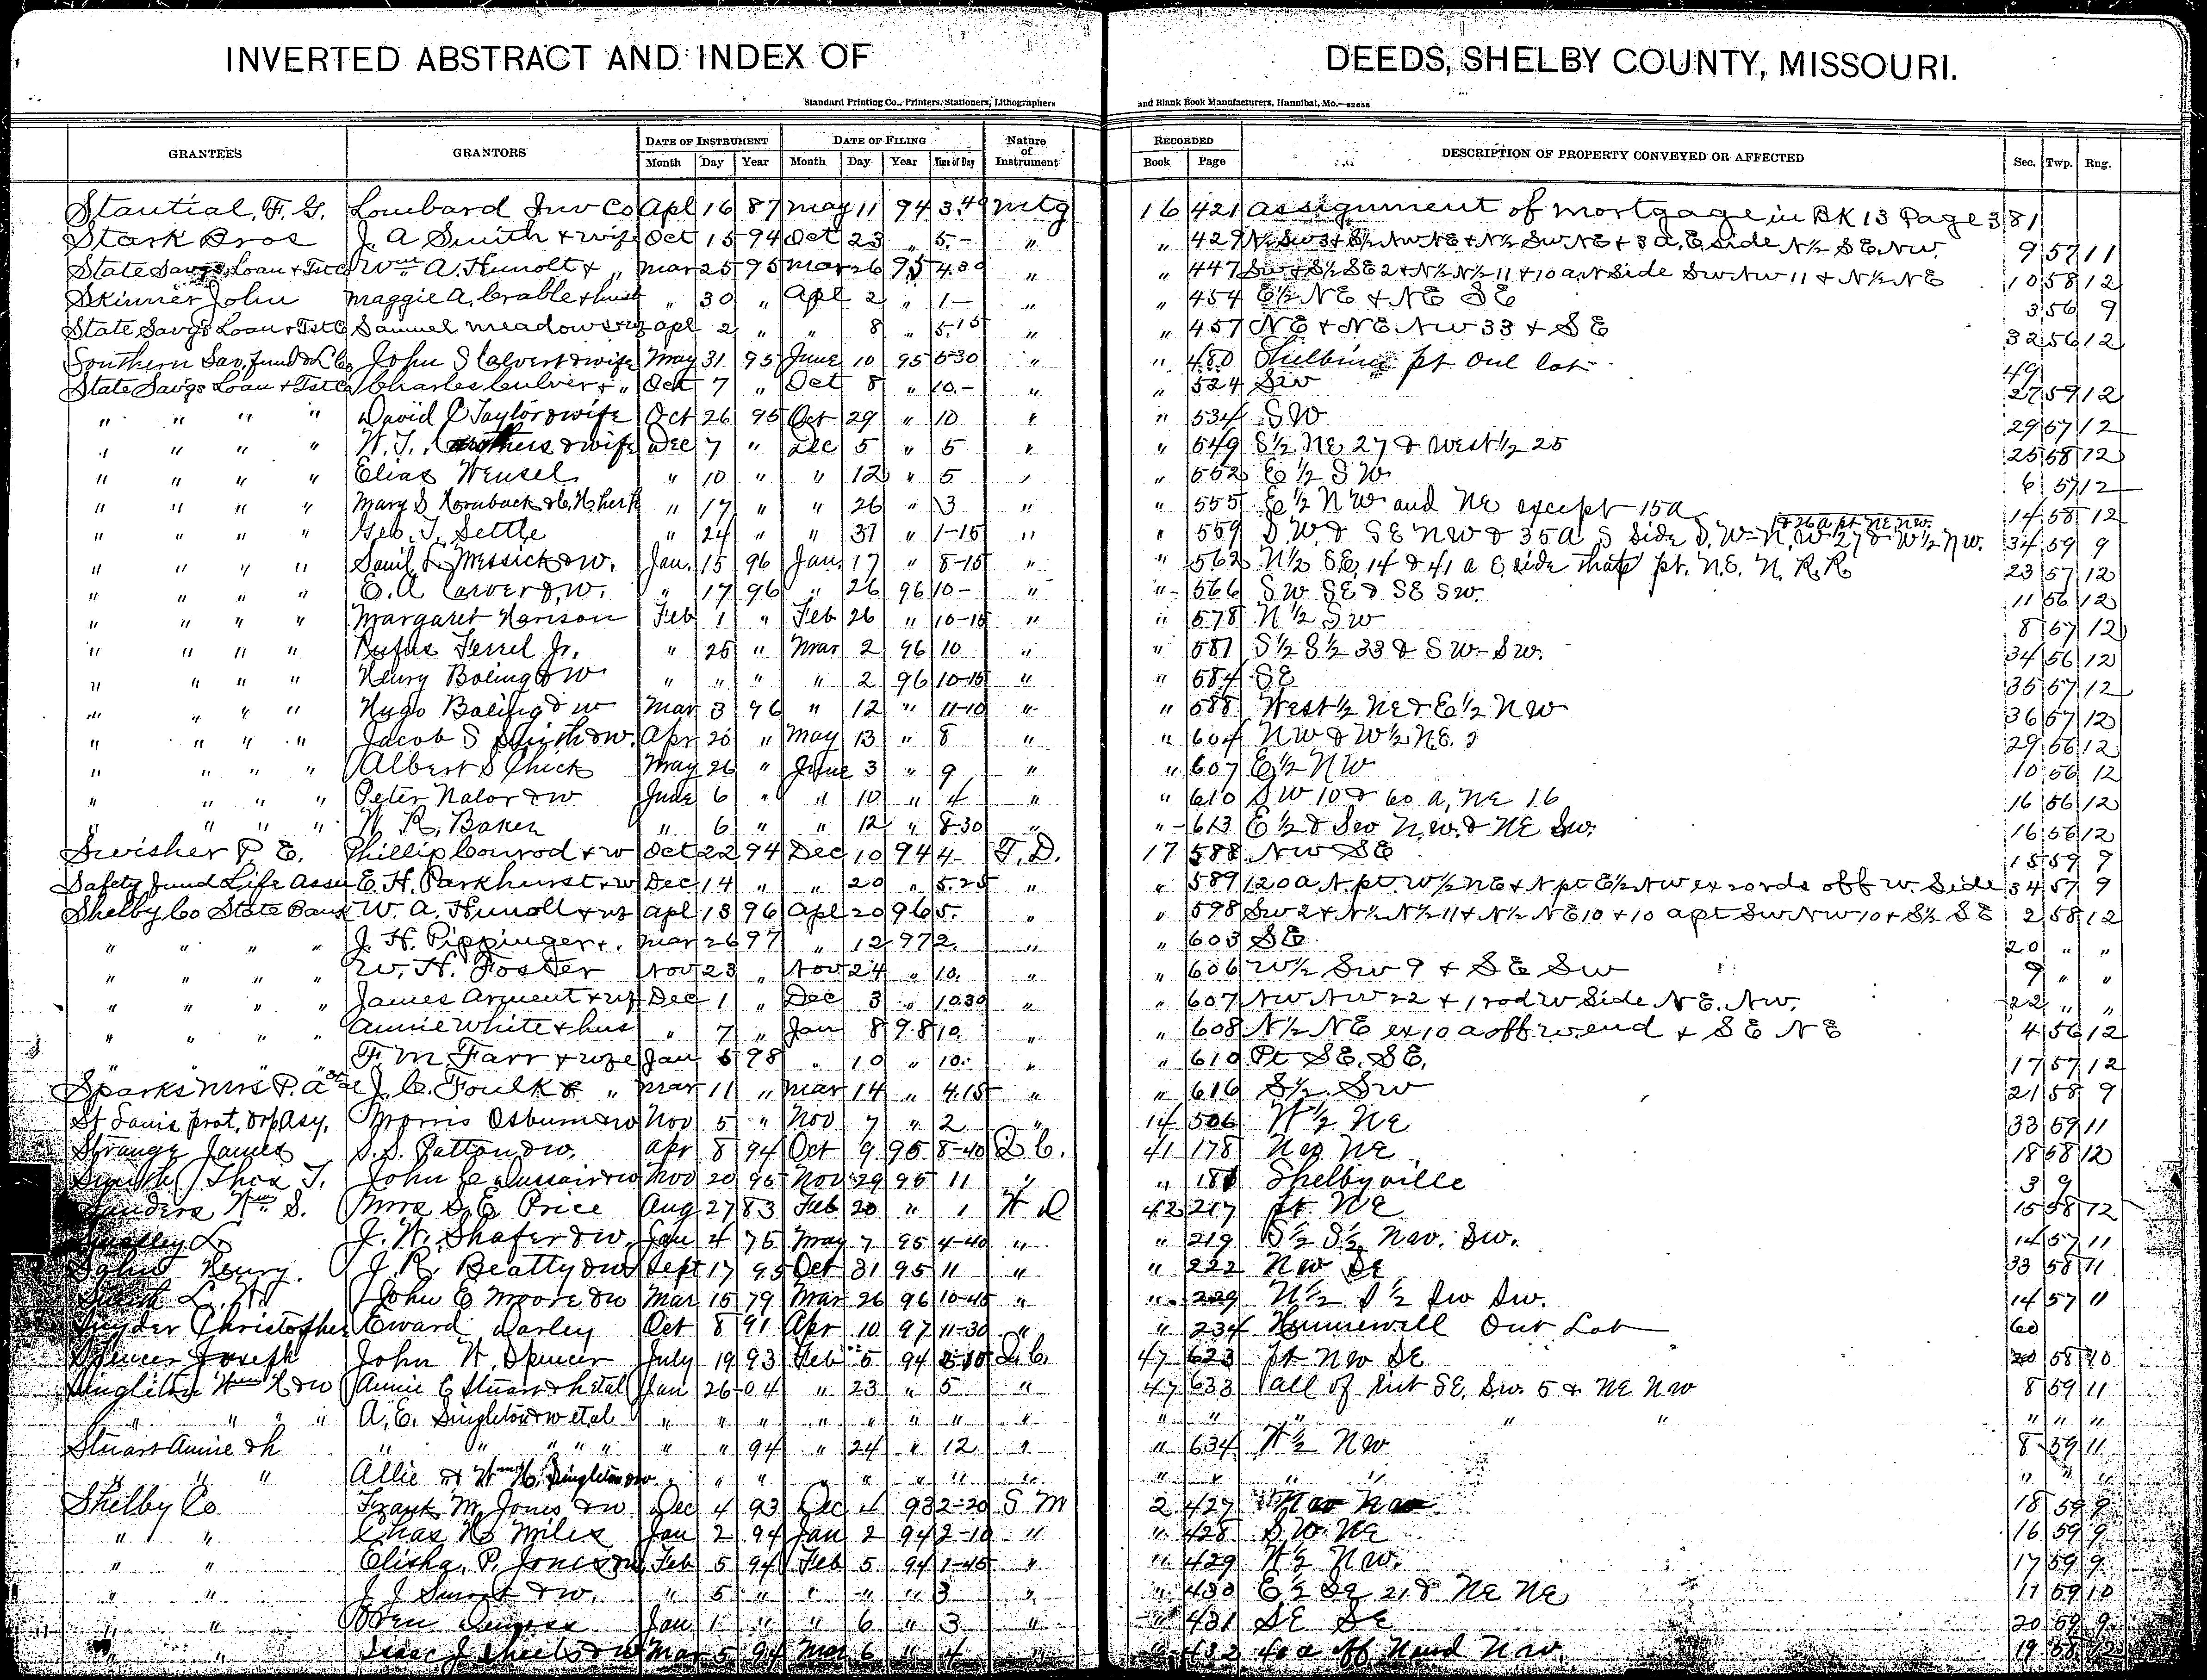 INVERTED ABSTRACT AND INDEX OF DEEDS, SHELBY COUNTY, MISSOURI.
Standard Printing Co., Printers, Stationers, Lithographers and Blank Book Manufacturers, Hannibal, Mo.
GRANTEES GRANTORS DATE OF INSTRUMENT DATE OF FILING Nature of Instrument RECORDED DESCRIPTION OF PROPERTY CONVEYED OR AFFECTED Sec. Twp. Rng.
Month Day Year Month Day Year Time of Day Book Page
Stautial, F. G. Lombard Inv Co Apl 16 87 May 11 94 3.40 Mtg 16 421 Assignment of mortgage in BK 13 Page 381
Stark Bros J. A Smith + wife Oct 15 94 Oct 23 " 5.- " " 429 N½ Sw 3 + S½ Nw NE + N½ Sw NE + 3 a, E side N½ S E. Nw. 9 57 11
State Savgs, Loan + Tst Co Wm A. Hunolt + " Mar 25 95 Mar 26 95 4.30 " " 447 Sw + S½ SE 2 + N½ N½ 11 + 10 a N Side Sw Nw 11 + N½ NE 10 58 12
Skinner John Maggie A. Crable + husb " 30 " Apl 2 " 1- " " 454 E½ NE + NE SE 3 56 9
State Savgs Loan + Tst Co Samuel Meadows + wf Apl 2 " " 8 " 5.15 " " 457 NE + NE NW 33 + S E 32 56 12
Southern Sav. Fund & L Co John S Calvert & wife May 31 95 June 10 95 6-30 " " 480 Shelbina pt Out lot 49
State Savgs Loan + Tst Co Charles Culver + " Oct 7 " Oct 8 " 10.- " " 524 Sw 27 59 12
" " " " David C Taylor & wife Oct 26 95 Oct 29 " 10 " " 534 S W 29 57 12
" " " " W. T. & wife Dec 7 " Dec 5 " 5 " " 549 S½ NE 27 & West ½ 25 25 58 12
" " " " Elias Wensel " 10 " " 12 " 5 " " 552 E ½ S W 6 57 12
" " " " Mary S Hornback & C. H. her h " 17 " " 26 " 3 " " 555 E ½ N W and NE except 15a 14 58 12
" " " " Geo. T. Settle " 24 " " 31 " 1-15 " " 559 S W. & SE NW & 35a S side S. W - N. W 27 & W½ NW. & 26a pt NE NW. 34 59 9
" " " " Saml L Messick & w. Jan. 15 96 Jan. 17 " 8-15 " " 562 N½ SE 14 & 41 a E. side that pt. N.E. N. R. R 23 57 12
" " " " E. A Carver & w. " 17 96 " 26 96 10- " " 566 S W SE & SE SW. 11 56 12
" " " " Margaret Harison Feb 1 " Feb 26 " 10-15 " " 578 N ½ S W 8 57 12
" " " " Rufus Ferrel Jr. " 25 " Mar 2 96 10 " " 581 S½ S½ 33 & S W- S W. 34 56 12
" " " " Henry Boling & w " " " " 2 96 10-15 " " 584 SE 35 57 12
" " " " Hugo Boling & w Mar 3 96 " 12 " 11-10 " " 588 West ½ NE & E½ N W 36 57 12
" " " " Jacob S Smith & w. Apr 20 " May 13 " 8 " " 604 N W & W½ N.E. 29 56 12
" " " " Albert S Chick May 26 " June 3 " 9 " " 607 E½ N W 10 56 12
" " " " Peter Nalor & w June 6 " " 10 " 4 " " 610 S W 10 & 60 a, NE 16 16 56 12
" " " " W. R. Baker " 6 " " 12 " 8-30 " " 613 E ½ & SW N.W. & NE SW. 16 56 12
Swisher P. E. Phillip Conrod + w Oct 22 94 Dec 10 94 4- T. D. 17 588 NW SE 15 59 9
Safety Fund Life Assu E. H. Parkhurst + w Dec 14 " " 20 " 5.25 " " 589 120 a N. pt. W ½ NE + N pt E½ NW ex 20 rds off W. Side 34 57 9
Shelby Co State Bank W. A. Hunolt + wf Apl 13 96 Apl 20 96 5. " " 598 Sw 2 + N½ N½ 11 + N½ NE 10 + 10 a pt Sw NW 10 + S½ SE 2 58 12
" " " " J. H. Pippinger +. Mar 26 97 " 12 97 2. " " 603 SE 20 " "
" " " " W. H. Foster Nov 23 " Nov 24 " 10. " " 606 W½ Sw 9 + SE Sw 9 " "
" " " " James Arguent + wf Dec 1 " Dec 3 " 10.30 " " 607 NW NW 22 + 1 rod W Side N E. NW, 22 " "
" " " " Annie White + hus " 7 " Jan 8 98 10. " " 608 N½ NE ex 10 a off w. end + S E NE 4 56 12
" " " " F. M. Farr + wfe Jan 5 98 " 10 " 10. " " 610 Pt SE. SE. 17 57 12
Sparks Mrs P. A et al J. C. Foulk & " Mar 11 " Mar 14 " 4.15 " " 616 S½ Sw 21 58 9
St Louis prot, Orp Asy. Morris Osburn & w Nov 5 " Nov 7 " 2 " 14 506 W ½ NE 33 59 11
Strange James S. S. Patton & w. Apr 8 94 Oct 9 95 8-40 Q C. 41 178 NW NE 18 58 12
Smith Thos T. John C & w Nov 20 95 Nov 29 95 11 " " 181 Shelbyville 3 9
Sanders Wm S. Mrs S. E Price Aug 27 83 Feb 20 " 1 W D 42 217 pt NE 15 58 12
Smalley L. J. W. Shafer & w. Jan 4 75 May 7 95 4-40 " " 219 S½ S½ NW. SW. 14 57 11
Sohn Henry. J. R. Beatty & w Sept 17 95 Oct 31 95 11 " " 222 NW SE 33 58 11
Smith L. H. John E Moore & w Mar 15 79 Mar 26 96 10-45 " " 229 N½ S ½ SW SW. 14 57 11
Snyder Christopher Eward Darley Oct 8 91 Apr 10 97 11-30 " " 234 Hunnewell Out Lot 60
Spencer Joseph John W. Spencer July 19 93 Feb 5 94 Q C. 47 623 pt NW SE 20 58 10
Singleton Wm H & w Annie C Stuart & h et al Jan 26 04 " 23 " 5 " 47 633 all of int SE. SW. 5 & NE NW 8 59 11
" " " " A. E. Singleton & w et al " " " " " " " " " " " " " " " "
Stuart Annie & h " " " " " " " 94 " 24 " 12 " " 634 W ½ NW 8 59 11
" " " Allie & Wm C. Singleton & w " " " " " " " " " " " " " " "
Shelby Co Frank M. Jones & w Dec 4 93 Dec 4 93 2-20 S M 2 427 NW NW 18 59 9
" " Chas H Miles Jan 2 94 Jan 2 94 2-10 " " 428 S. W. NE 16 59 9
" " Elisha P. Jones & w Feb 5 94 Feb 5 94 1-45 " " 429 W ½ NW. 17 59 9
" " J. J & w. " 5 " " " " 3 " " 430 E ½ SE 21 & NE NE 11 59 10
" " Oren Jan 1 " " 6 " 3 " " 431 SE SE 20 59 9
" " Isaac J Sheets & w Mar 5 94 Mar 6 " 4 " " 432 40 a off N end NW. 19 58 12